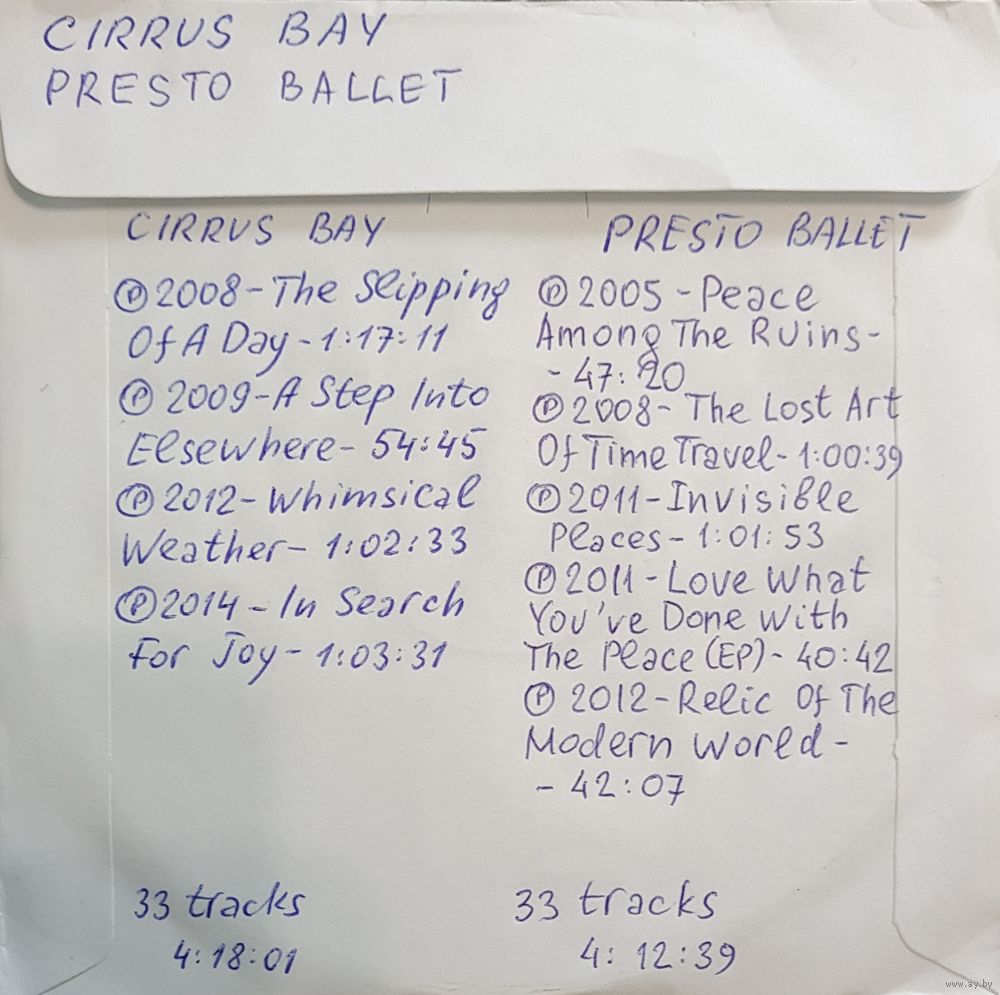 CIRRUS BAY
PRESTO BALLET
CIRRUS BAY
℗ 2008 - The Slipping
Of A Day - 1:17:11
℗ 2009 - A Step Into
Elsewhere - 54:45
℗ 2012 - Whimsical
Weather - 1:02:33
℗ 2014 - In Search
For Joy - 1:03:31
33 tracks
4:18:01
PRESTO BALLET
℗ 2005 - Peace
Among The Ruins -
- 47:20
℗ 2008 - The Lost Art
Of Time Travel - 1:00:39
℗ 2011 - Invisible
Places - 1:01:53
℗ 2011 - Love What
You've Done With
The Place (EP) - 40:42
℗ 2012 - Relic Of The
Modern World -
- 42:07
33 tracks
4:12:39
www.ay.by